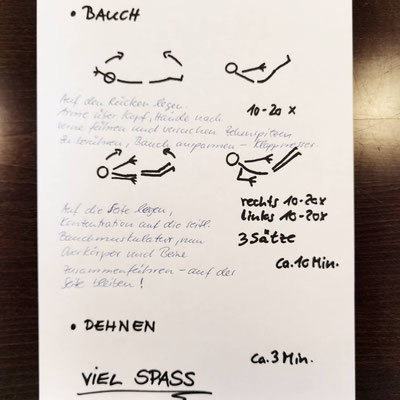 • BAUCH
Auf den Rücken legen.
Arme über Kopf, Hände nach
vorne führen und versuchen Zehenspitzen
zu berühren, Bauch anspannen - Klappmesser.
10-20 x
Auf die Seite legen,
Konzentration auf die seitl.
Bauchmuskulatur, nun
Oberkörper und Beine
zusammenführen - auf der
Seite bleiben!
rechts 10-20x
links 10-20x
3 Sätze
ca. 10 Min.
• DEHNEN
ca. 3 Min.
VIEL SPASS